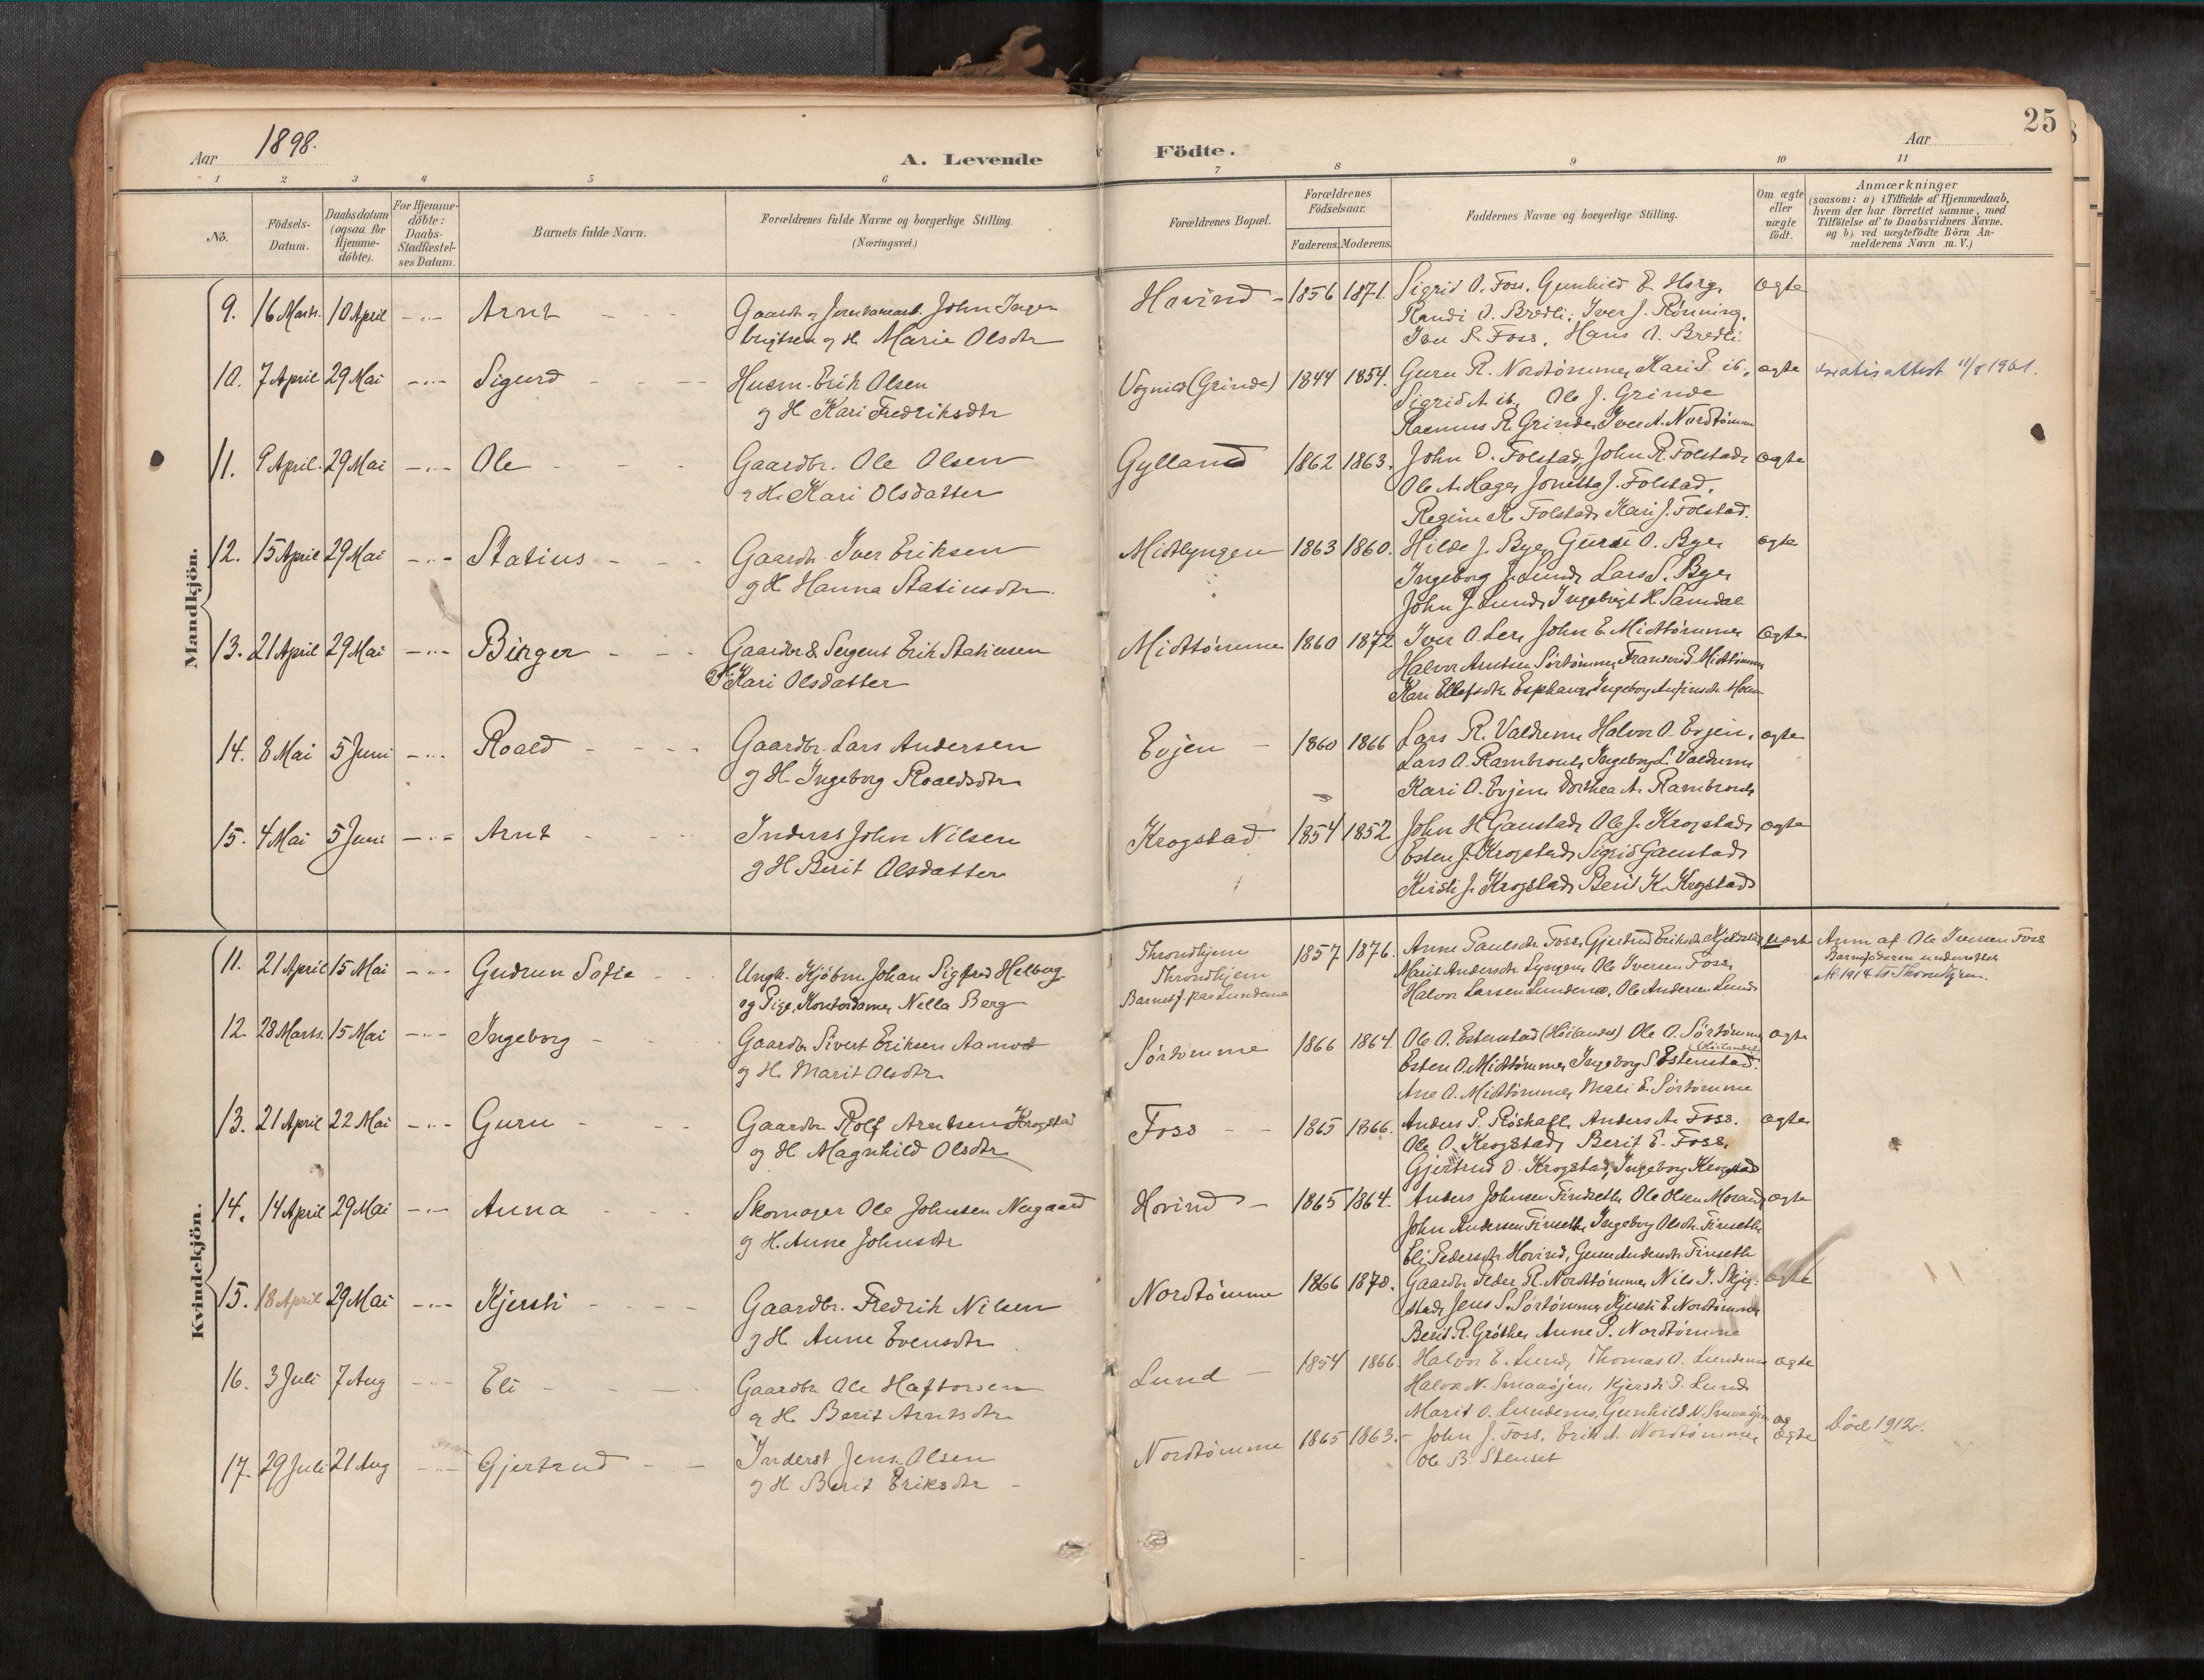 25
Aar 1898.
A. Levende
Födte.
Aar
1 2 3 4 5 6 7 8 9 10 11
Nô.
Födsels-Datum.
Daabsdatum (ogsaa for Hjemme-döbte).
For Hjemme-döbte: Daabs-Stadfæstel-ses Datum.
Barnets fulde Navn.
Forældrenes fulde Navne og borgerlige Stilling.
(Næringsvei.)
Forældrenes Bopæl.
Forældrenes Födselsaar.
Faderens. Moderens.
Faddernes Navne og borgerlige Stilling.
Om ægte eller uægte födt.
Anmærkninger
(saasom: a) i Tilfælde af Hjemmedaab,
hvem der har forrettet samme, med
Tilföielse af to Daabsvidners Navne.
og b) ved uægtefödte Börn An-
melderens Navn m. V.)
Mandkjön.
9. 16 Marts. 10 April Arnt
Gaardb. og John Inge-
brigtsen og H. Marie Olsdtr
Hovind 1856 1871.
Sigrid O. Foss, Gunhild E. Horg,
Randi O. Bredli, Iver J. Rönning,
Iver P. Foss, Hans O. Bredli
ægte
10. 7 April 29 Mai Sigurd
Husm. Erik Olsen
og H. Kari Fredriksdtr
Vognild (Grinde) 1844 1854.
Guru R. Nordtömme, Kari E. ib.,
Sigrid A. ib., Ole J. Grinde
Rasmus R. Grinde, Iver A. Nordtömme
ægte
gratis attest 11/8 1901.
11. 9 April. 29 Mai Ole
Gaardbr. Ole Olsen
og H. Kari Olsdatter
Gylland 1862 1863.
John O. Folstad, John R. Folstad,
Ole A. Hage, Jonetta J. Folstad,
Regine R. Folstad, Kari J. Folstad.
ægte
12. 15 April 29 Mai Statius
Gaardb. Iver Eriksen
og H. Hanna Statiusdtr.
Midtlyngen 1863 1860.
Hilde J. Bye, Gursi O. Bye,
Ingeborg J. Lund, Lars S. Bye,
John J. Lund, Ingebrigt H. Samdal
ægte
13. 21 April 29 Mai Birger
Gaardbr & Sergent Erik Statiusen
og H. Kari Olsdatter
Midttömme 1860 1872
Iver O. Ler, John E. Midttömme
Halvor Arntsen Sörtömme, E. Midttömme
Kari Ellefsdtr Esphaug, Ingeborg
ægte
14. 8 Mai 5 Juni Roald
Gaardbr. Lars Andersen
og H. Ingeborg Roaldsdtr
Evjen 1860 1866
Lars R. Valdum, Halvor O. Evjen,
Lars O. Rambraut, Ingeborg L. Valdum
Kari O. Evjen, Dorthea A. Rambraut
ægte
15. 4 Mai 5 Juni Arnt
Inderst John Nilsen
og H. Berit Olsdatter
Krogstad 1854 1852
John H. Gaustad, Ole J. Krogstad,
Esten J. Krogstad, Sigrid Gaustad,
Kirsti J. Krogstad, Berit K. Krogstad
ægte
Kvindekjön.
11. 21 April 15 Mai Gudrun Sofie
Ungk. Kjöbm. Johan Sigfred Helberg
og Pige, Kontordame, Nella Berg
Throndhjem
Throndhjem
Barnet f. paa Lundemo
1857 1876.
Anne Paulsdtr Foss, Gjertrud Eriksdtr
Marit Andersdtr Lyngen, Ole Iversen Foss,
Halvor Larsen Lundemo, Ole Andersen Lund
uægte
Anm af Ole Iversen Foss
Barnefaderen underrettet
1914 Throndhjem.
12. 28 Marts. 15 Mai Ingeborg
Gaardb. Sivert Eriksen Aamot
og H. Marit Olsdtr.
Sörtömme 1866 1864
Ole O. Estenstad (Höilandet) Ole O. Sörtömme
Esten O. Midttömme, Ingeborg S. Estenstad.
Ane O. Midttömme, Mali E. Sörtömme
ægte
13. 21 April 22 Mai Guru
Gaardbr. Rolf Arntsen Krogstad
og H. Magnhild Olsdtr
Foss 1865 1866.
Anders P. Röskaft, Anders A. Foss,
Ole O. Krogstad, Berit E. Foss,
Gjertrud O. Krogstad, Ingeborg Krogstad
ægte
14. 14 April 29 Mai Anna
Skomager Ole Johnsen Nygaard
og H. Anne Johnsdtr
Hovind 1865 1864.
Anders Johnsen Findseth, Ole Olsen
John Andersen Finseth, Ingeborg Olsdtr. Finseth
Eli Pedersdtr Hovind, Guru Andersdtr Finseth
ægte
15. 18 April 29 Mai Kjersti
Gaardbr. Fredrik Nilsen
og H. Anne Evensdtr
Nordtömme 1866 1870.
Gaardbr. Peder R. Nordtömme, Nils J. Skjeg-
stad, Jens S. Sörtömme, Kjersti E. Nordtömme
Berit R. Gröthe, Anne P. Nordtömme
ægte
16. 3 Juli 7 Aug Eli
Gaardbr. Ole Haftorsen
og H. Berit Arntsdtr.
Lund 1854 1866.
Halvor E. Lund, Thomas O. Lundemo
Halvor N. Smaaöjen, Kjersti P. Lund,
Marit O. Lundemo, Gunhild N. Smaaöjen
ægte
17. 29 Juli 21 Aug Gjertrud
Inderst Jens Olsen
og H. Berit Eriksdtr
Nordtömme 1865 1863.
John J. Foss, Erik A. Nordtömme,
Ole B. Stenset
ægte
Död 1912.